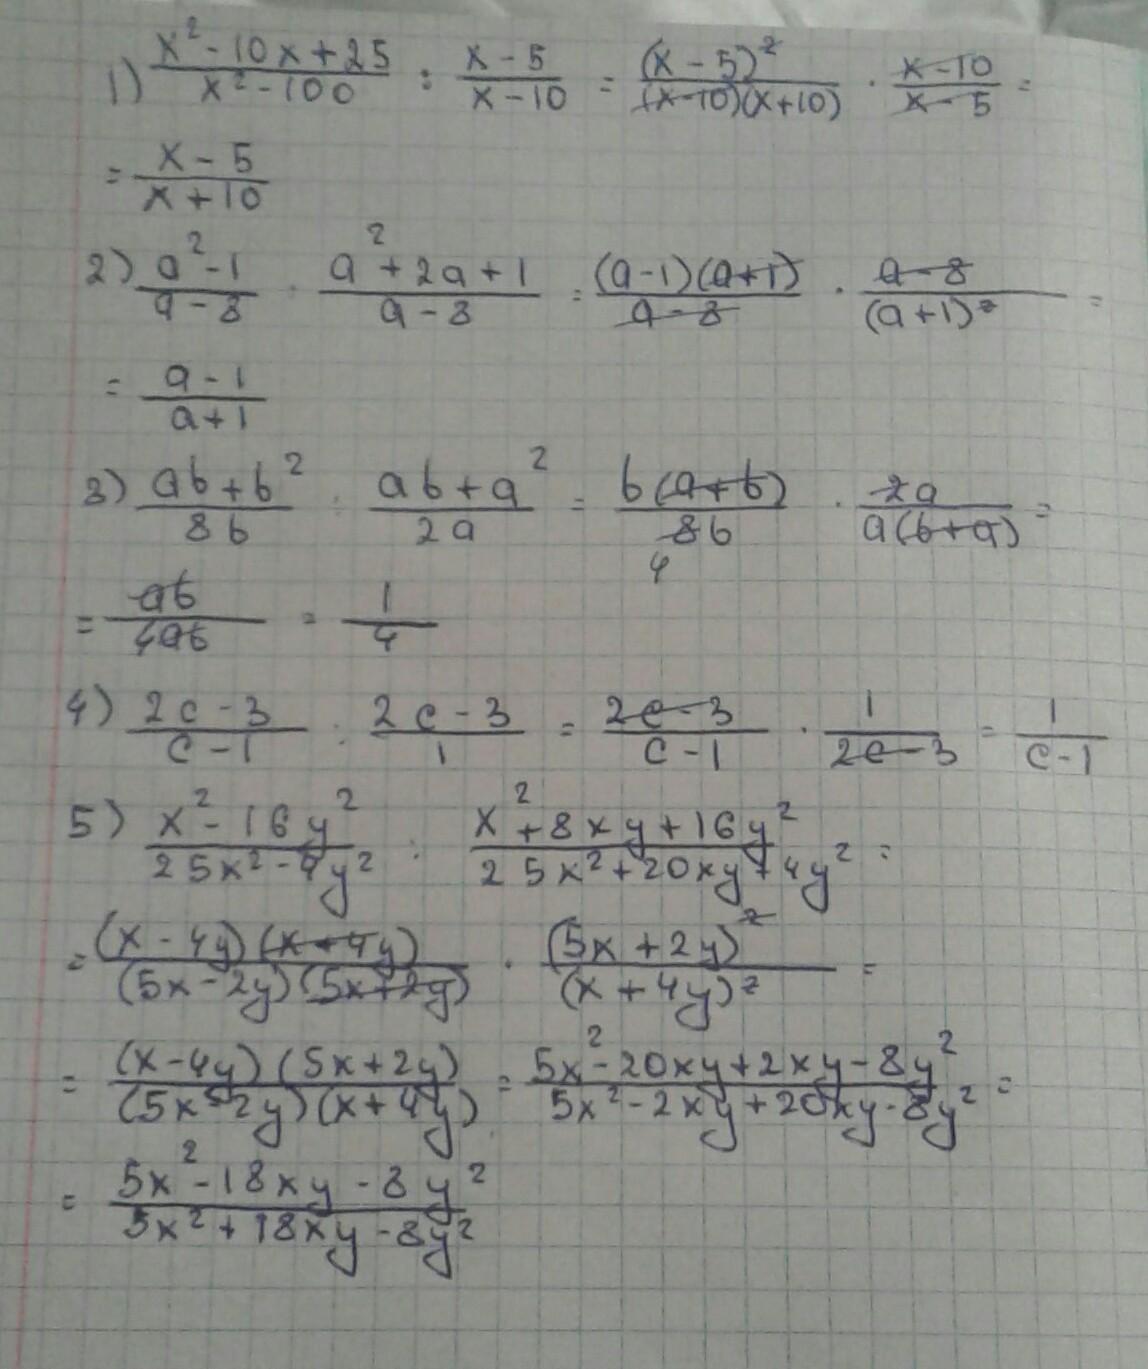 1) (x² - 10x + 25)/(x² - 100) : (x - 5)/(x - 10) = (x - 5)²/((x-10)(x+10)) · (x-10)/(x-5) =
= (x - 5)/(x + 10)
2) (a² - 1)/(a - 8) : (a² + 2a + 1)/(a - 8) = ((a-1)(a+1))/(a-8) · (a-8)/(a+1)² =
= (a - 1)/(a + 1)
3) (ab + b²)/(8b) : (ab + a²)/(2a) = (b(a+b))/(8b) · (2a)/(a(b+a)) =
4
= (ab)/(4ab) = 1/4
4) (2c - 3)/(c - 1) : (2c - 3)/1 = (2c - 3)/(c - 1) · 1/(2c - 3) = 1/(c - 1)
5) (x² - 16y²)/(25x² - 4y²) : (x² + 8xy + 16y²)/(25x² + 20xy + 4y²) =
= ((x - 4y)(x + 4y))/((5x - 2y)(5x + 2y)) · (5x + 2y)²/(x + 4y)² =
= ((x - 4y)(5x + 2y))/((5x - 2y)(x + 4y)) = (5x² - 20xy + 2xy - 8y²)/(5x² - 2xy + 20xy - 8y²) =
= (5x² - 18xy - 8y²)/(5x² + 18xy - 8y²)